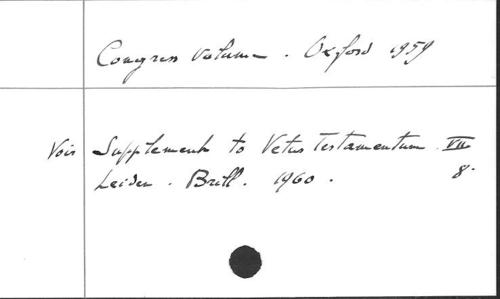 Congress Volume. Oxford 1959
Voir Supplements to Vetus Testamentum VII
Leiden. Brill. 1960. 8.